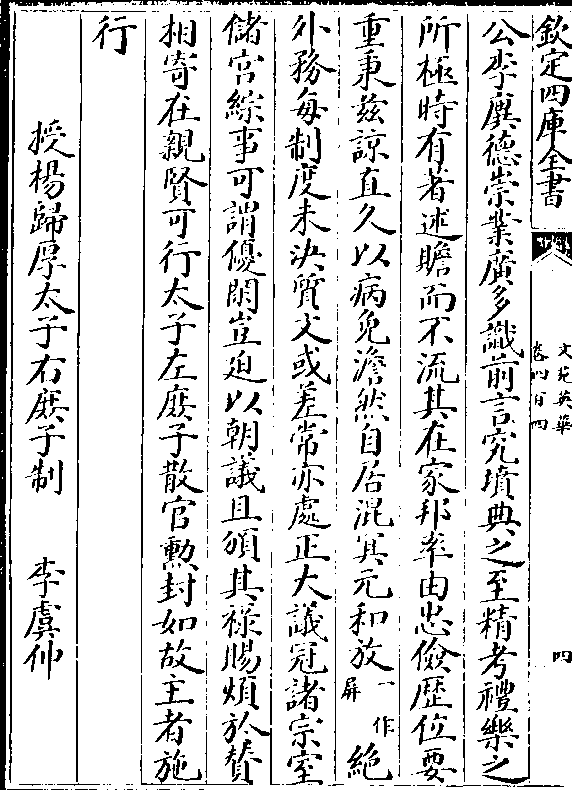 欽定四庫全書
文苑英華
卷四百四
四
公李廙德崇業廣多識前言究墳典之至精考禮樂之
所極時有著述贍而不流其在家邦率由忠儉歷位要
重秉兹諒直久以病免澹然自居混冥元和放一作屏絶
外務每制度未決質文或差常亦處正大議冠諸宗室
儲宫綜事可謂優閑豈迫以朝議且頒其祿賜煩於賛
相寄在親賢可行太子左庶子散官勲封如故主者施
行
授楊歸厚太子右庶子制 李虞仲